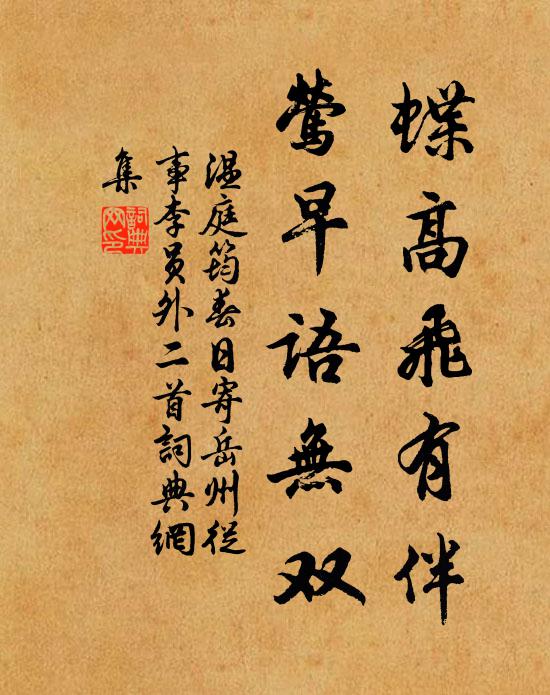 蝶高飛有伴
鶯早語無双
温庭筠春日寄岳州從
事李員外二首詞典網
集
詞典
网印